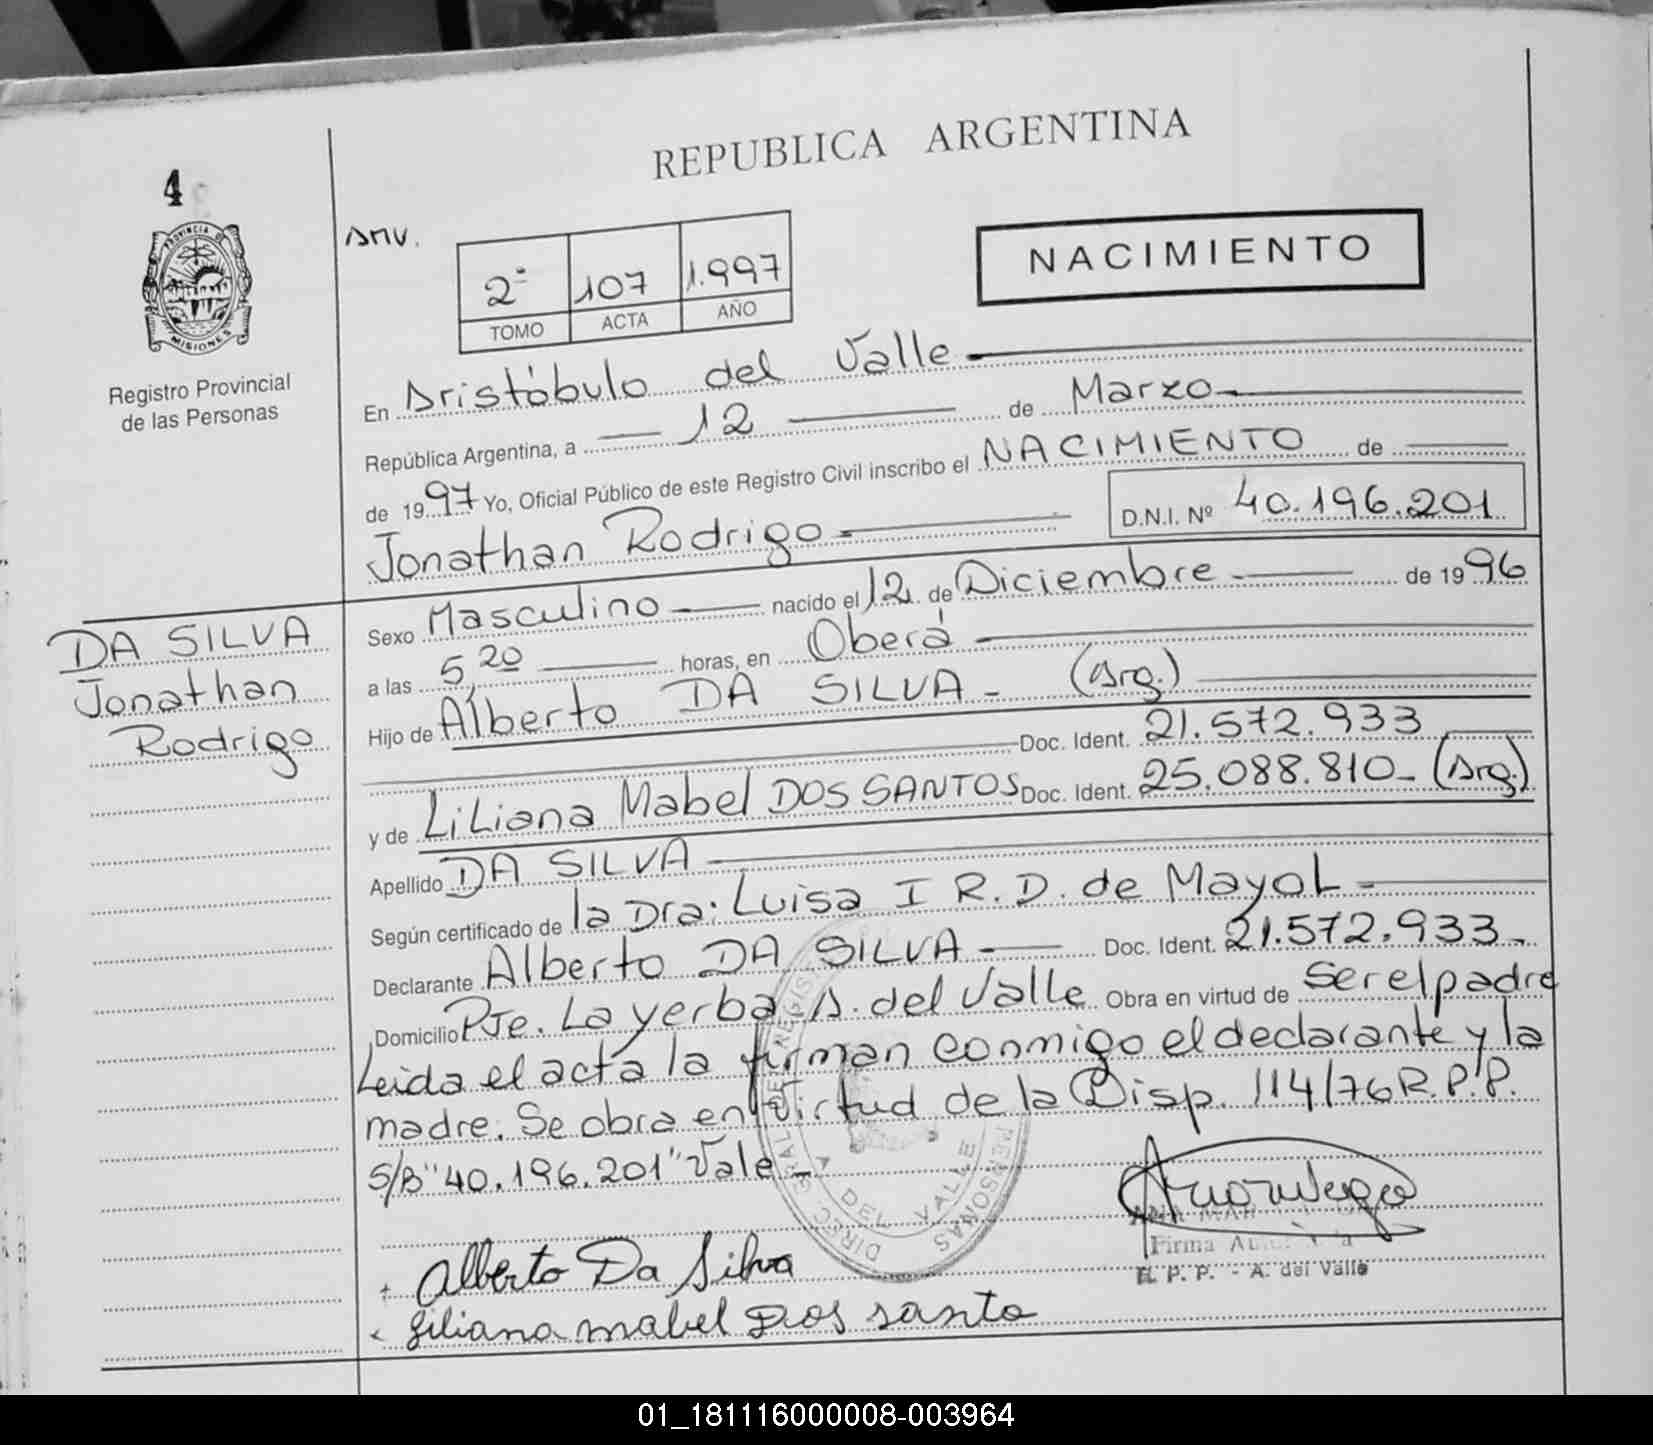 REPUBLICA ARGENTINA
4
PROVINCIA DE
MISIONES
Registro Provincial
de las Personas
AMV.
2º 107 1.997
TOMO ACTA AÑO
NACIMIENTO
En Aristóbulo del Valle
República Argentina, a 12 de Marzo
de 1997 Yo, Oficial Público de este Registro Civil inscribo el NACIMIENTO de
Jonathan Rodrigo D.N.I. Nº 40.196.201
DA SILVA
Jonathan
Rodrigo
Sexo Masculino nacido el 12 de Diciembre de 1996
a las 5 20 horas, en Oberá
Hijo de Alberto DA SILVA - (Arg.)
Doc. Ident. 21.572.933
y de Liliana Mabel DOS SANTOS Doc. Ident. 25.088.810- (Arg.)
Apellido DA SILVA
Según certificado de la Dra: Luisa I R. D. de Mayol -
Declarante Alberto DA SILVA Doc. Ident. 21.572.933-
Domicilio Pje. La yerba A. del Valle Obra en virtud de Ser el padre
Leida el acta la firman conmigo el declarante y la
madre. Se obra en virtud de la Disp. 114/76 R.P.P.
S/B "40.196.201" Vale -
DIREC. GRAL. DE REGIS PERSONAS
DEL VALLE
Alberto Da Silva
Liliana mabel Dos santo
ANA
Firma
R. P. P. - A. del Valle
01_181116000008-003964